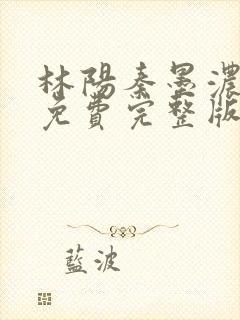 林陽秦墨濃
免費完整版
藍波